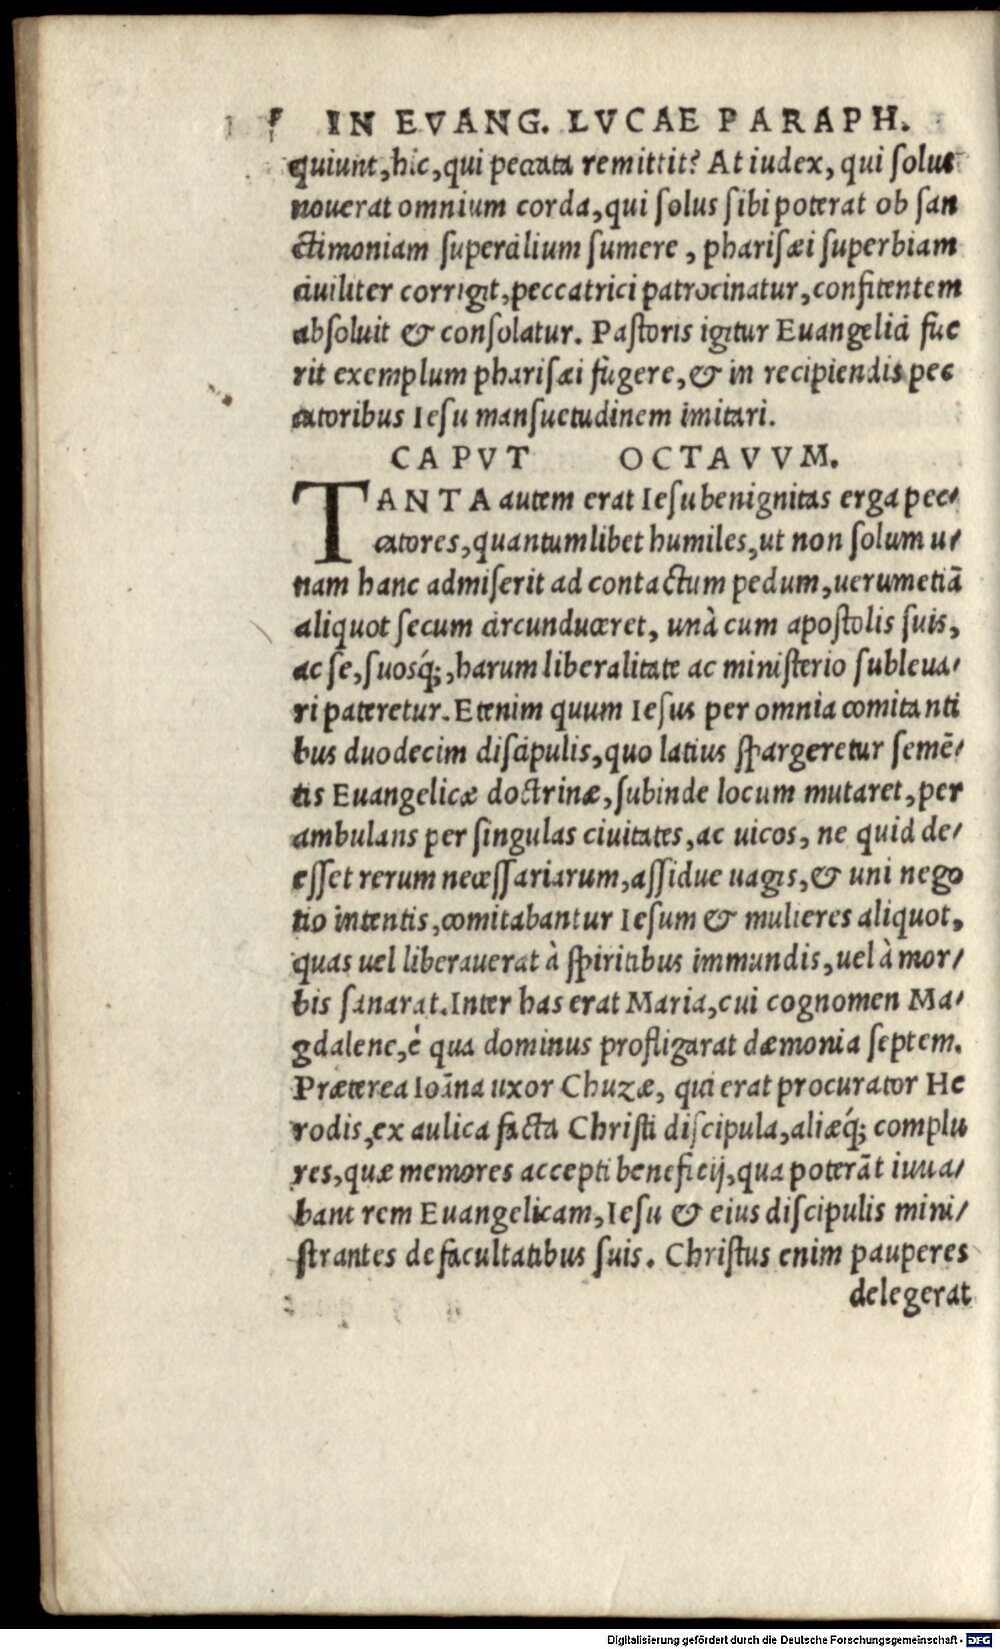 IN EVANG. LVCAE PARAPH.
quiunt, hic, qui peccata remittit? At iudex, qui solus
nouerat omnium corda, qui solus sibi poterat ob san
ctimoniam supercilium sumere, pharisæi superbiam
ciuiliter corrigit, peccatrici patrocinatur, confitentem
absoluit & consolatur. Pastoris igitur Euangelici fue
rit exemplum pharisæi fugere, & in recipiendis pec
catoribus Iesu mansuetudinem imitari.
CAPVT OCTAVVM.
TANTA autem erat Iesu benignitas erga pec-
catores, quantumlibet humiles, ut non solum u-
nam hanc admiserit ad contactum pedum, uerumetiã
aliquot secum circunduceret, unà cum apostolis suis,
ac se, suosq́;, harum liberalitate ac ministerio subleua-
ri pateretur. Etenim quum Iesus per omnia comitanti
bus duodecim discipulis, quo latius spargeretur semẽ-
tis Euangelicæ doctrinæ, subinde locum mutaret, per
ambulans per singulas ciuitates, ac uicos, ne quid de-
esset rerum necessariarum, assidue uagis, & uni nego
tio intentis, comitabantur Iesum & mulieres aliquot,
quas uel liberauerat à spiritibus immundis, uel à mor-
bis sanarat. Inter has erat Maria, cui cognomen Ma-
gdalene, è qua dominus profligarat dæmonia septem.
Præterea Ioãna uxor Chuzæ, qui erat procurator He
rodis, ex aulica facta Christi discipula, aliæq́; complu
res, quæ memores accepti beneficij, qua poterãt iuua-
bant rem Euangelicam, Iesu & eius discipulis mini-
strantes de facultatibus suis. Christus enim pauperes
delegerat
Digitalisierung gefördert durch die Deutsche Forschungsgemeinschaft - DFG